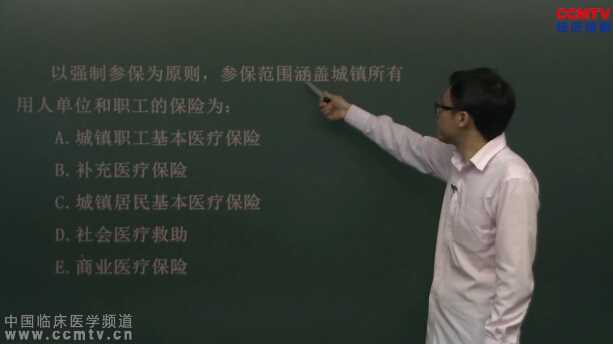 CCMTV
临床频道
以强制参保为原则，参保范围涵盖城镇所有
用人单位和职工的保险为：
A.城镇职工基本医疗保险
B.补充医疗保险
C.城镇居民基本医疗保险
D.社会医疗救助
E.商业医疗保险
中国临床医学频道
www.ccmtv.cn